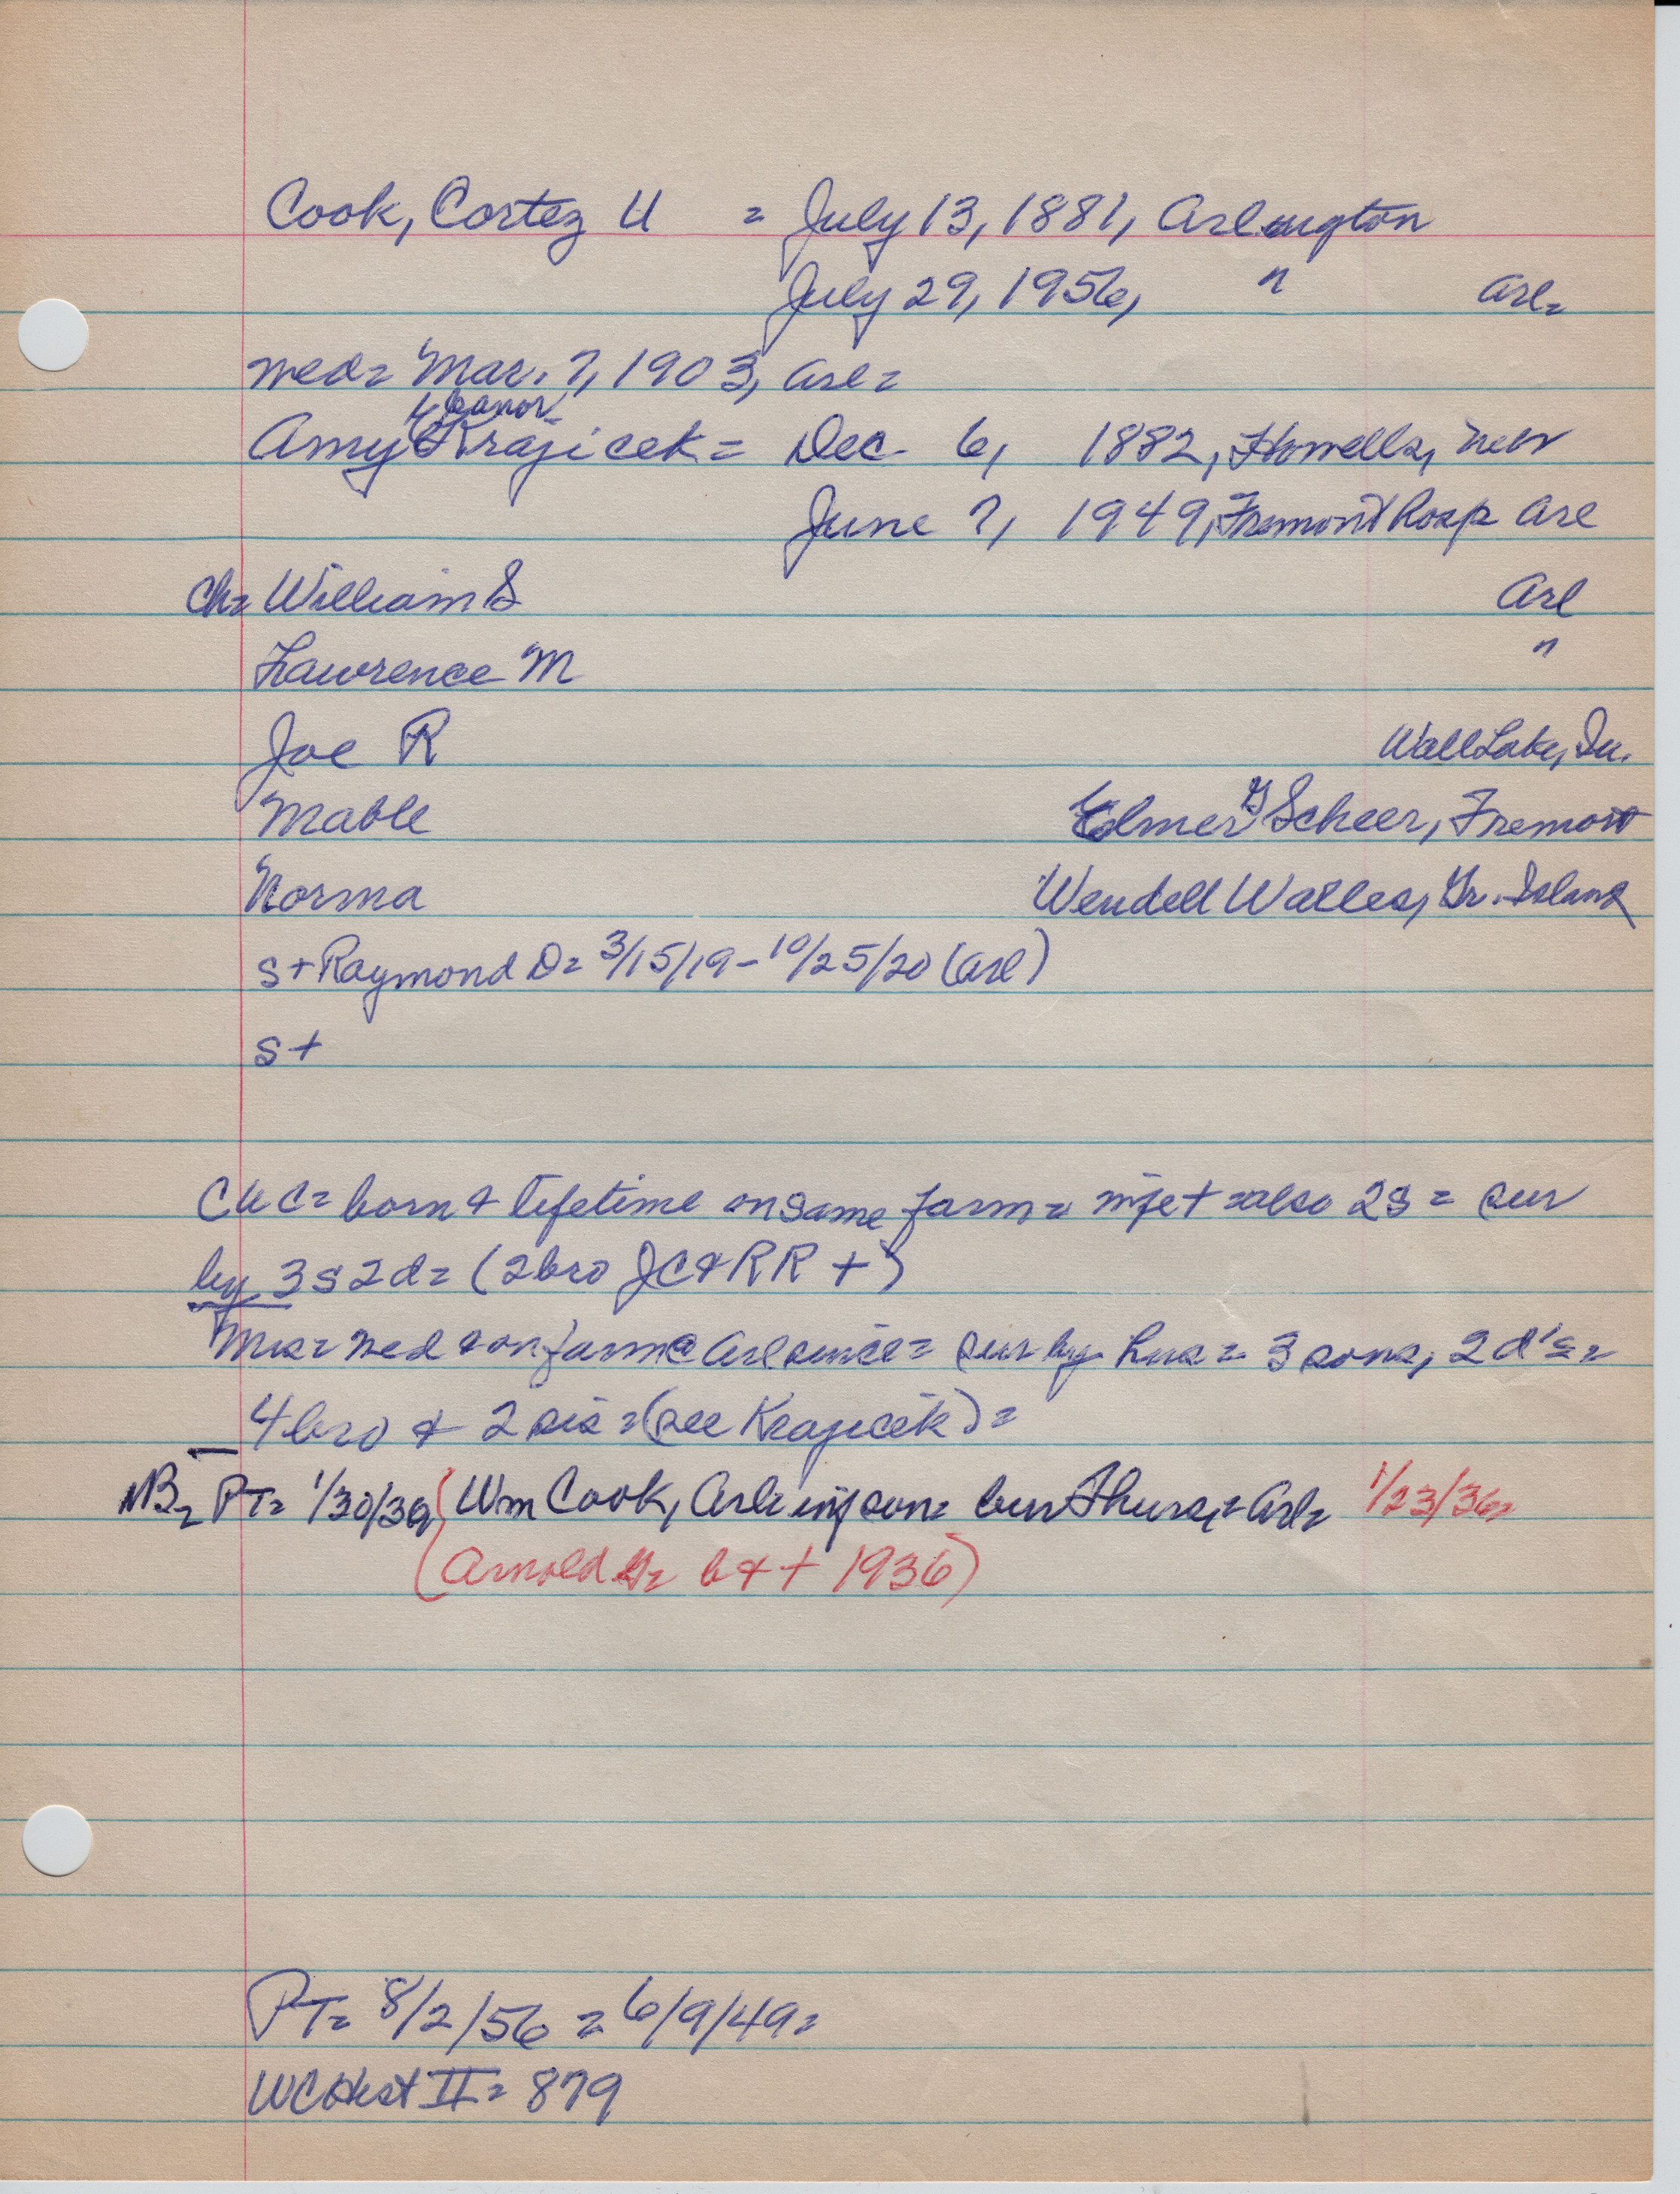 Cook, Cortez U = July 13, 1881, Arlington
July 29, 1956, " Arl=
wed= Mar. 7, 1903, Arl=
Eleanor
Amy Krajicek = Dec 6, 1882, Howells, Neb
June 7, 1949, Fremont Hosp Arl
Ch= William S Arl
Lawrence M "
Joe R Wall Lake, Ia.
Mable Elmer G Scheer, Fremont
Norma Wendell Walles, Gr. Island
s+ Raymond D= 3/15/19 - 10/25/20 (Arl)
s+
CUC= born & lifetime on same farm= wife + also 2s = sur
by 3s 2d= (2 bro JC & RR +)
Mrs= wed & on farm @ Arl since= sur by hus= 3 sons, 2 d's=
4 bro & 2 sis =(see Krajicek)=
NB= PT= 1/30/36 (Wm Cook, Arl inf son= bur Thurs,= Arl= 1/23/36=
(Arnold G= b & + 1936)
PT= 8/2/56 = 6/9/49=
WCHist II= 879